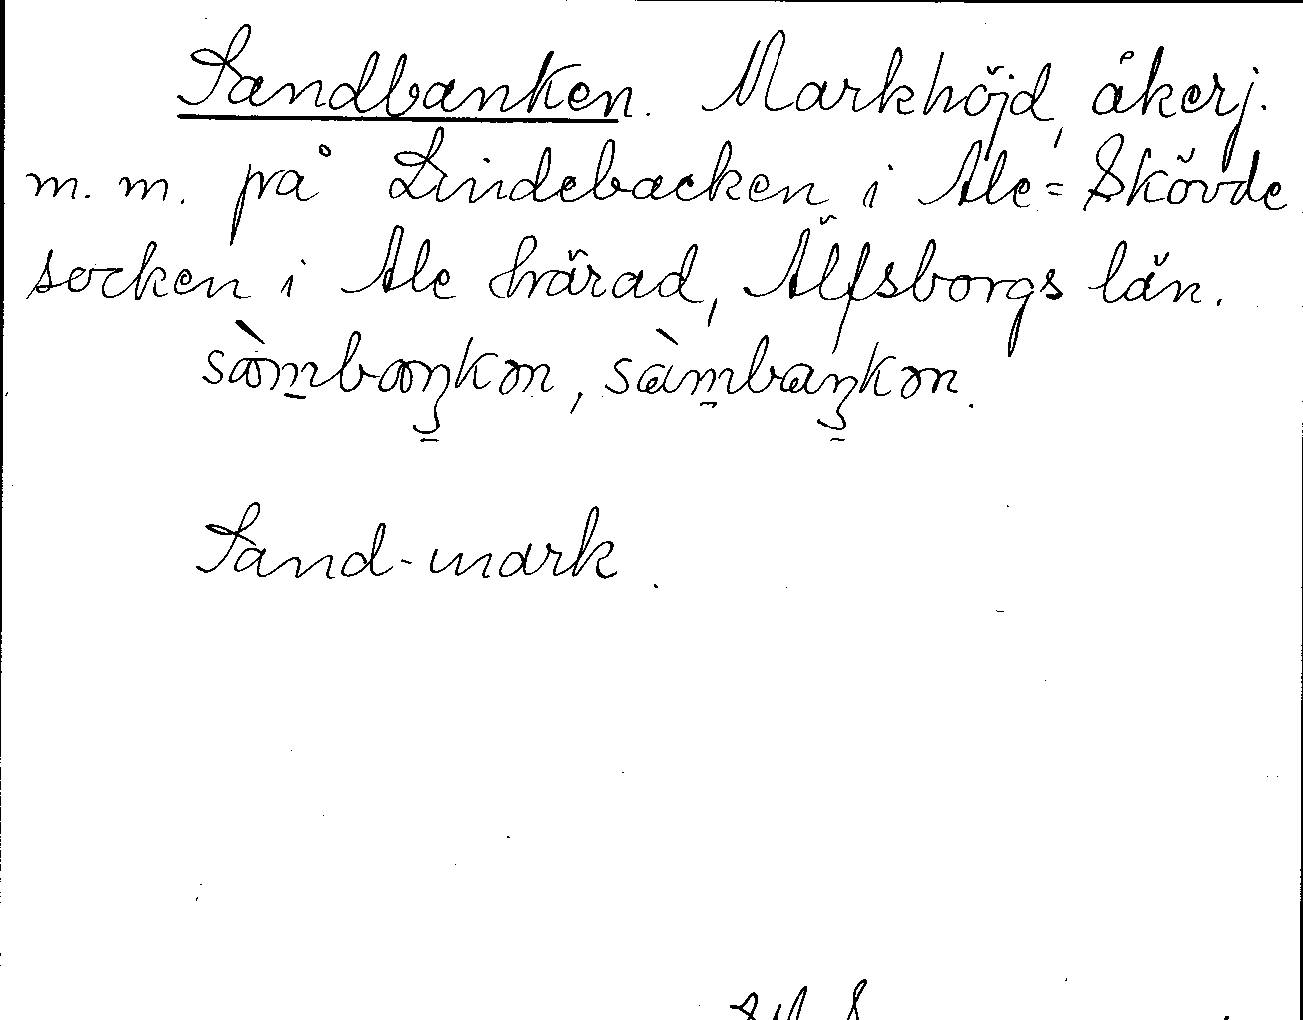 Sandbanken. Markhöjd, åkerj.
m. m. på Lindebacken i Ale=Skövde
socken i Ale härad, Älfsborgs län.
Sand-mark.